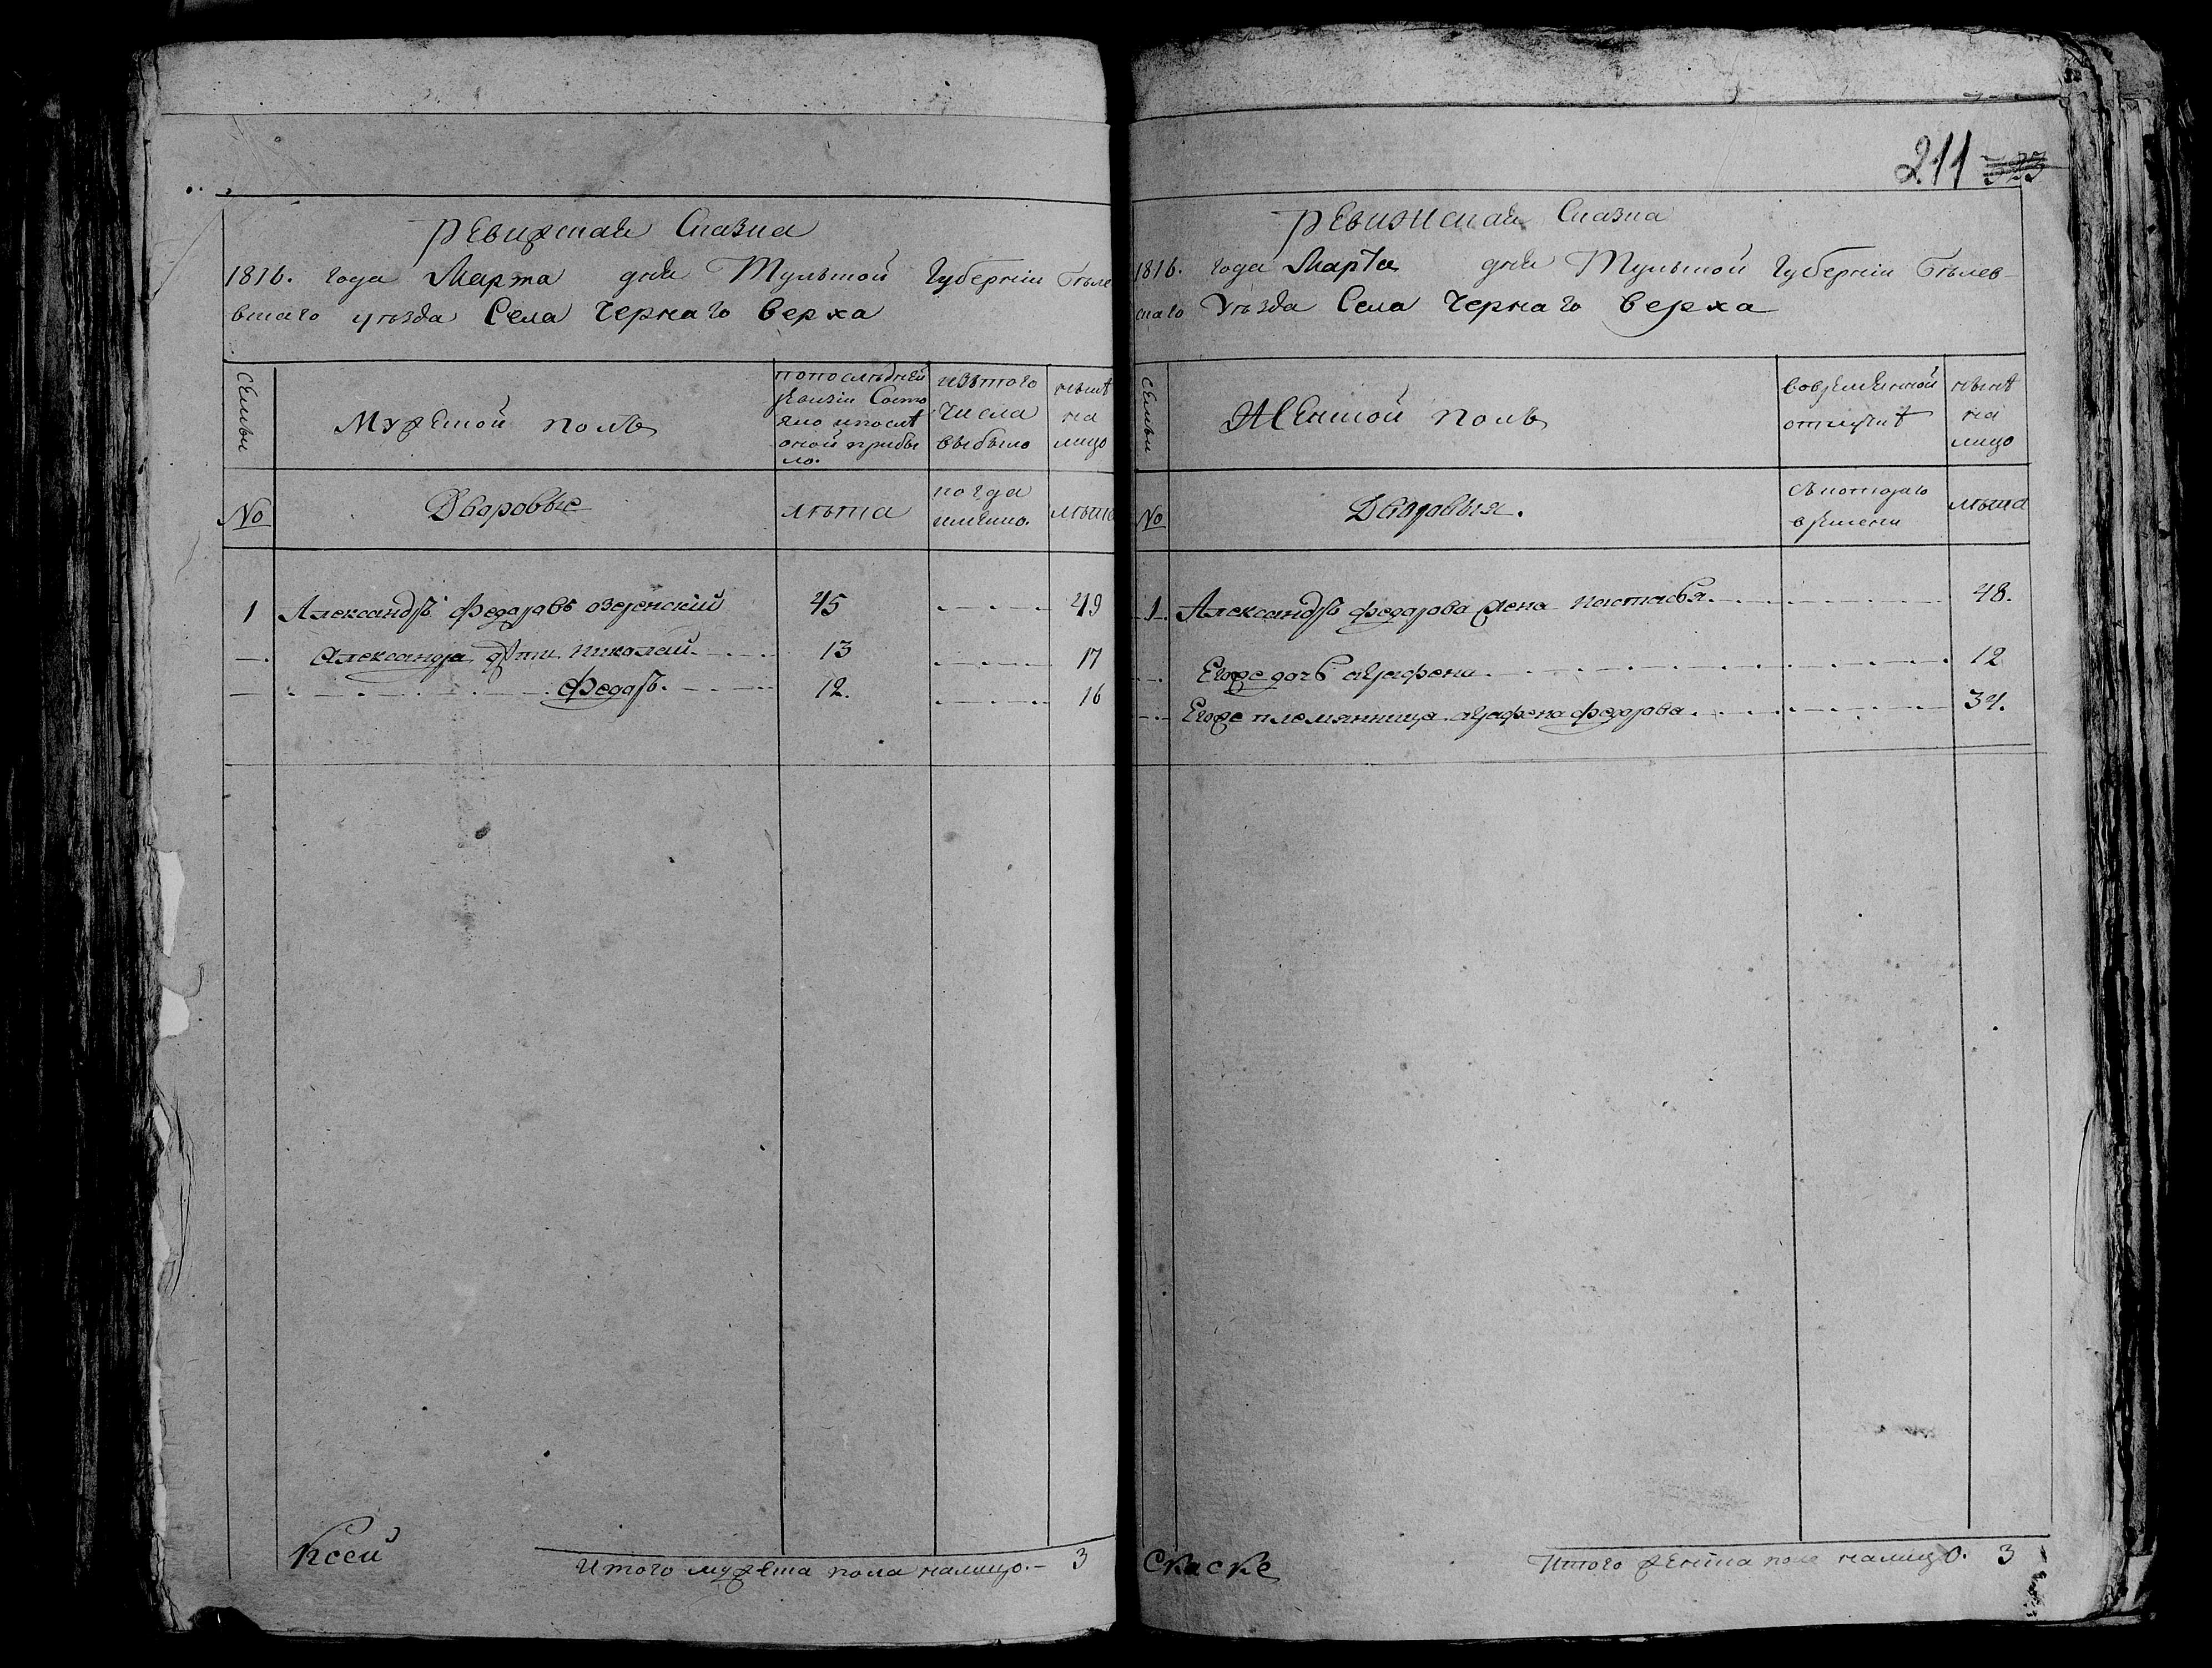 Ревижская Сказка
1816. года Марта дня Тульской Губернии Беле
вскаго уезда Села Чернаго верха
Семьи
Мужеской полъ
попоследней
ревизiи Состо
яло ипосле
оной прибы
ло.
изътого
числа
выбыло
ныне
на
лицо
№
Дворовые
лета
когда
имянно.
лета
1 Александръ Федоровъ озеренский 45 49
Александра дети Николай 13 17
Федоръ. 12. 16
Ксей
Итого мужеска пола налицо. 3
211 323
Ревижская Сказка
1816. года Марта дня Тульской Губернiи Белев
скаго Уезда Села Чернаго верха
Семьи
Женской полъ
вовременной
отлучке
ныне
на
лицо
№
Дворовыя.
съкотораго
времени
лета
1. Александръ федорова жена настасья 48.
Егоже дочь аграфена 12
Егоже племянница аграфена федорова 34.
Скаске
Итого женска пола налицо. 3